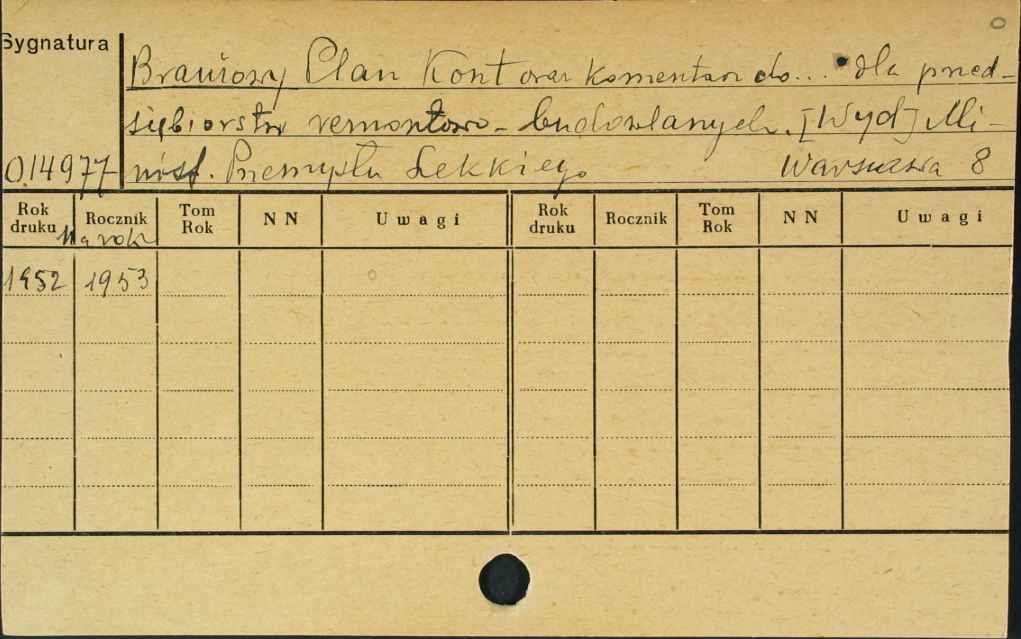 Sygnatura
Branżowy Plan Kont oraz Komentarz do... dla przed-
siębiorstw remontowo-budowlanych. [Wyd] Mi-
014977 nist. Przemysłu Lekkiego Warszawa 8
Rok druku Rocznik Tom Rok N N Uwagi Rok druku Rocznik Tom Rok N N Uwagi
Na rok
1952 1953